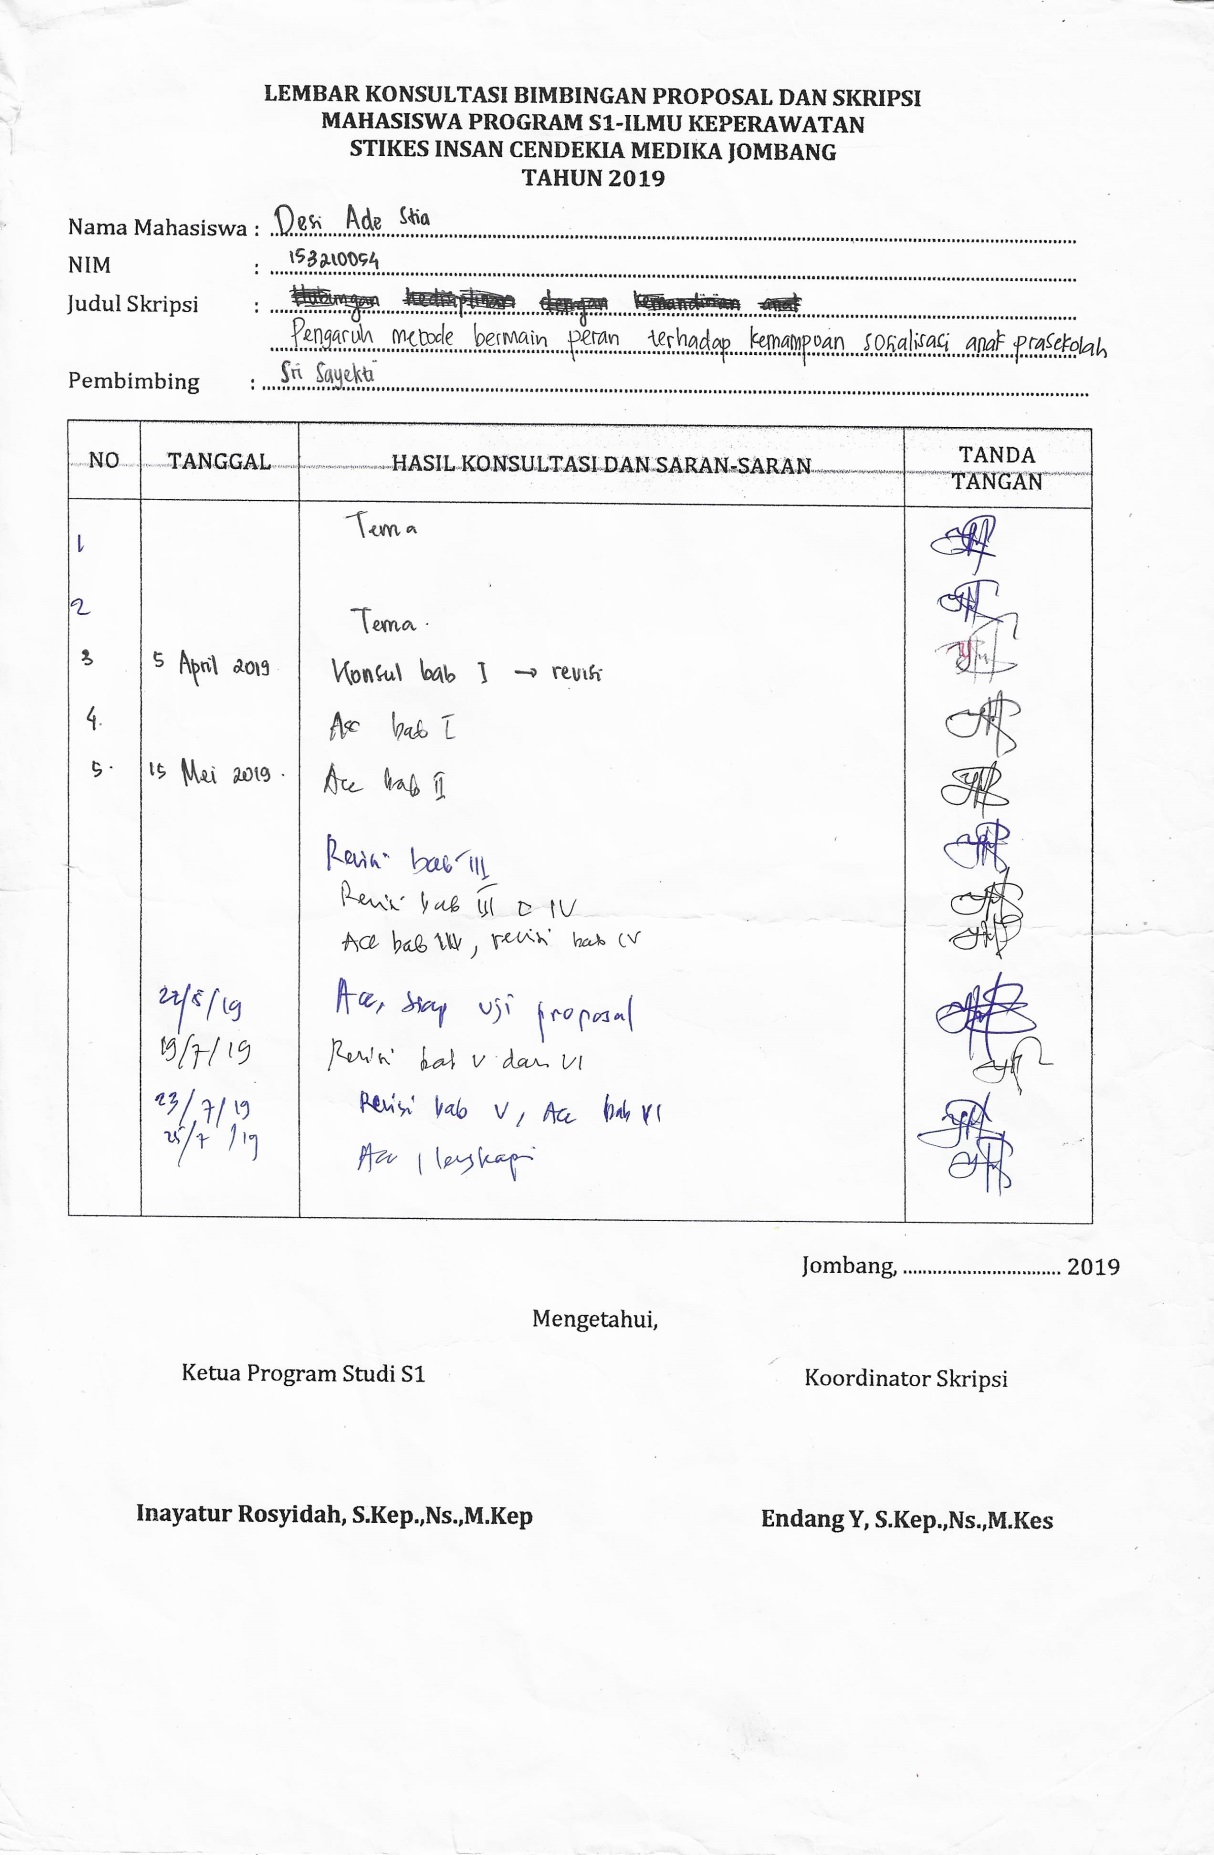 LEMBAR KONSULTASI BIMBINGAN PROPOSAL DAN SKRIPSI
MAHASISWA PROGRAM S1-ILMU KEPERAWATAN
STIKES INSAN CENDEKIA MEDIKA JOMBANG
TAHUN 2019
Nama Mahasiswa : Desi Ade Stia
NIM : 153210054
Judul Skripsi : Hubungan kedisiplinan dengan kemandirian anak
Pengaruh metode bermain peran terhadap kemampuan sosialisasi anak prasekolah
Pembimbing : Sri Sayekti
NO TANGGAL HASIL KONSULTASI DAN SARAN-SARAN TANDA TANGAN
1 Tema
2 Tema.
3 5 April 2019 Konsul bab I → revisi
4. Acc bab I
5. 15 Mei 2019. Acc bab II
Revisi bab III
Revisi bab III IV
Acc bab III, revisi bab IV
/5/19 Acc, siap uji proposal
19/7/19 Revisi bab V dan VI
23/7/19 Revisi bab V, Acc bab VI
25/7/19 Acc, lengkapi
Jombang, .............................. 2019
Mengetahui,
Ketua Program Studi S1 Koordinator Skripsi
Inayatur Rosyidah, S.Kep.,Ns.,M.Kep Endang Y, S.Kep.,Ns.,M.Kes